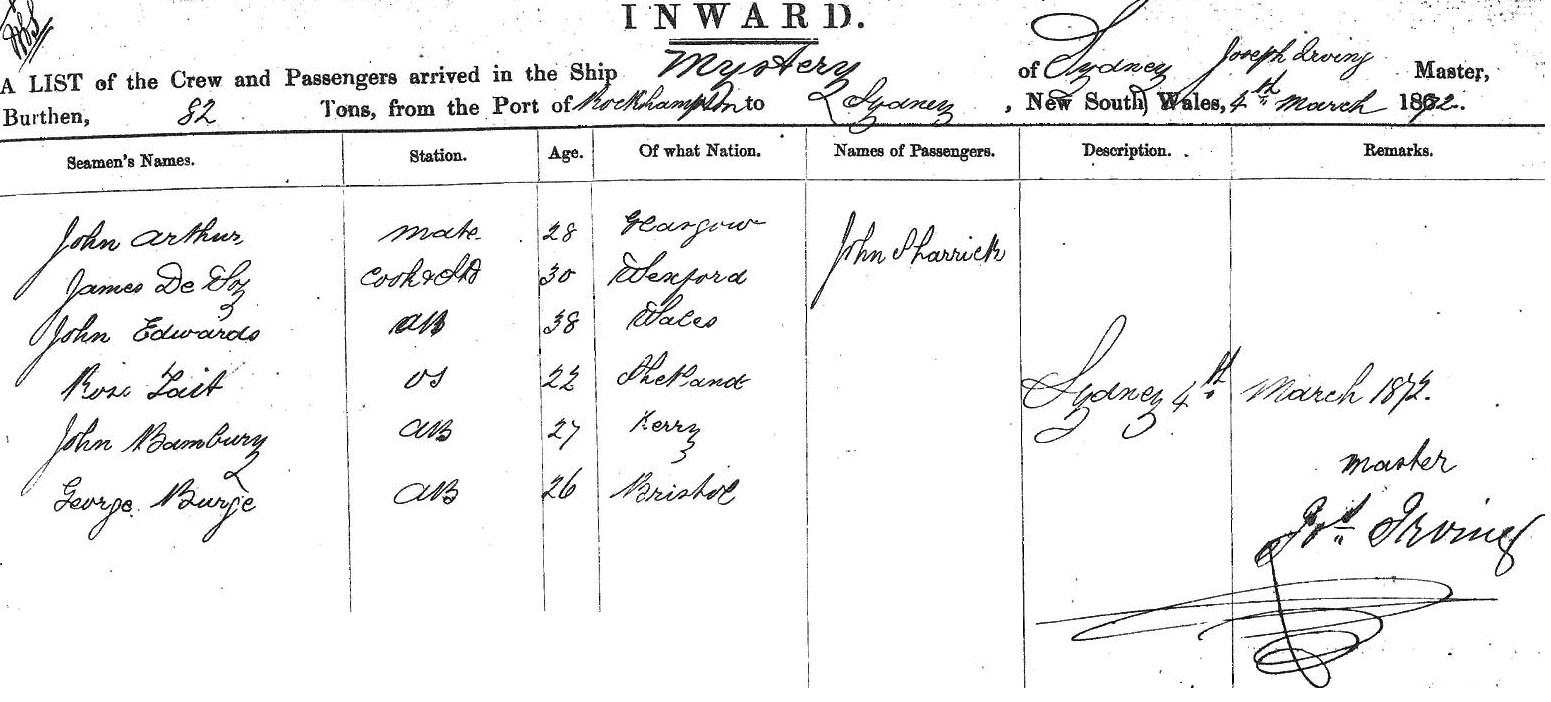 INWARD.
A LIST of the Crew and Passengers arrived in the Ship Mystery of Sydney Joseph Irving Master,
Burthen, 82 Tons, from the Port of Rockhampton to Sydney, New South Wales, 4th March 1872.
Seamen's Names. Station. Age. Of what Nation. Names of Passengers. Description. Remarks.
John Arthur mate 28 Glasgow John Sharrick
James De Cook & Std 30 Wexford
John Edwards AB 38 Wales
Rose Tait OS 22 Shetland
Sydney 4th March 1872.
John Bambury AB 27 Kerry
master
George Burge AB 26 Bristol
Jos Irving